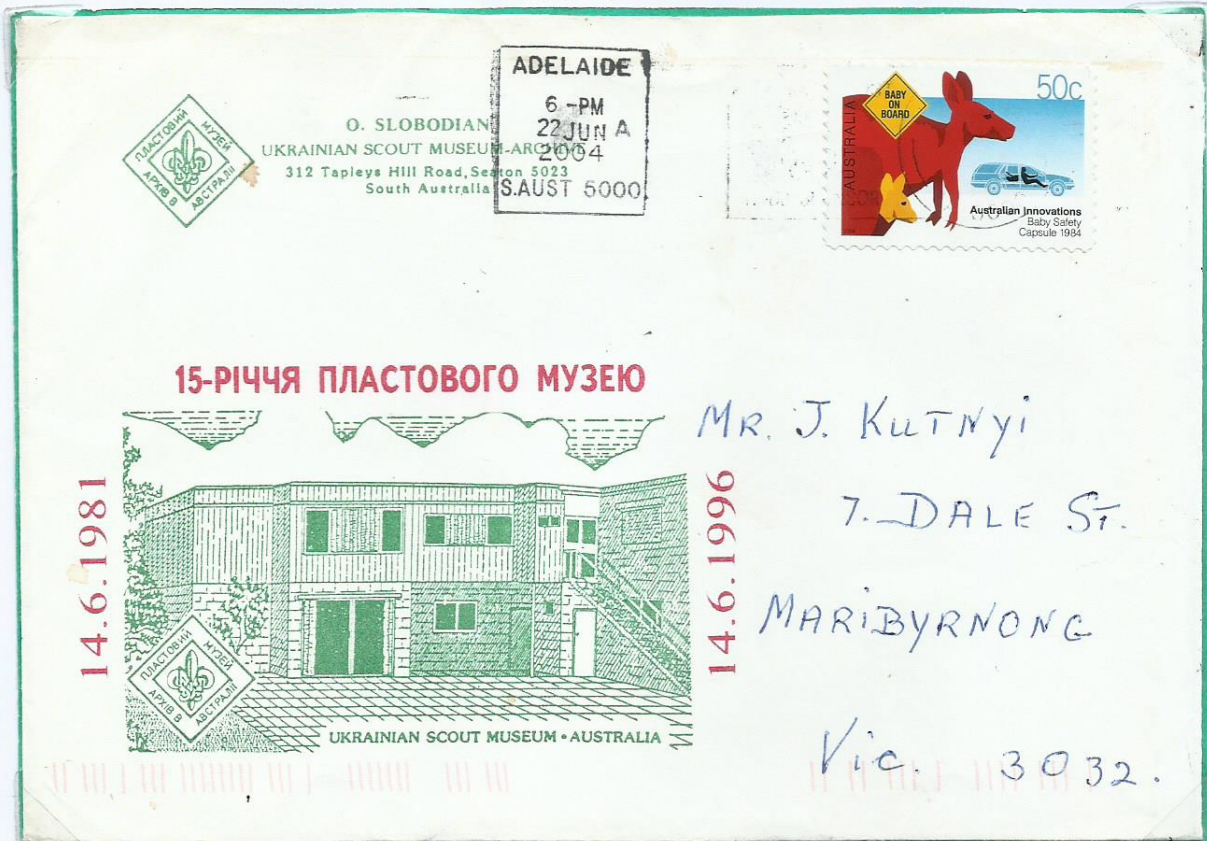 ПЛАСТОВИЙ МУЗЕЙ
АРХІВ В АВСТРАЛІЇ
O. SLOBODIAN
UKRAINIAN SCOUT MUSEUM-ARCHIVE
312 Tapleys Hill Road, Seaton 5023
South Australia
ADELAIDE
6 -PM
22 JUN A
2004
S.AUST 5000
BABY
ON
BOARD
50c
AUSTRALIA
Australian Innovations
Baby Safety
Capsule 1984
15-РІЧЧЯ ПЛАСТОВОГО МУЗЕЮ
14.6.1981
14.6.1996
ПЛАСТОВИЙ МУЗЕЙ
АРХІВ В АВСТРАЛІЇ
UKRAINIAN SCOUT MUSEUM • AUSTRALIA
MR. J. KUTNYi
7. DALE ST.
MARiBYRNONG
Vic. 3032.